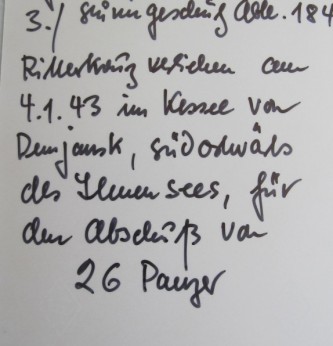 3./ Sturmgeschütz Abt. 184
Ritterkreuz verliehen am
4.1.43 im Kessel von
Demjansk, südostwärts
des Ilmensees, für
den Abschuß von
26 Panzer